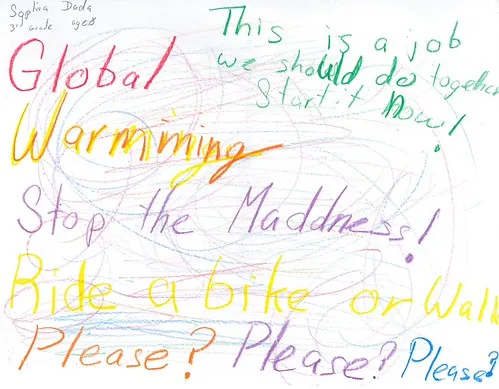 Sophia Dada
3rd grade age 8
This is a job
we should do together
Start it Now!
Global
Warmming
Stop the Maddness!
Ride a bike or Walk
Please? Please? Please?